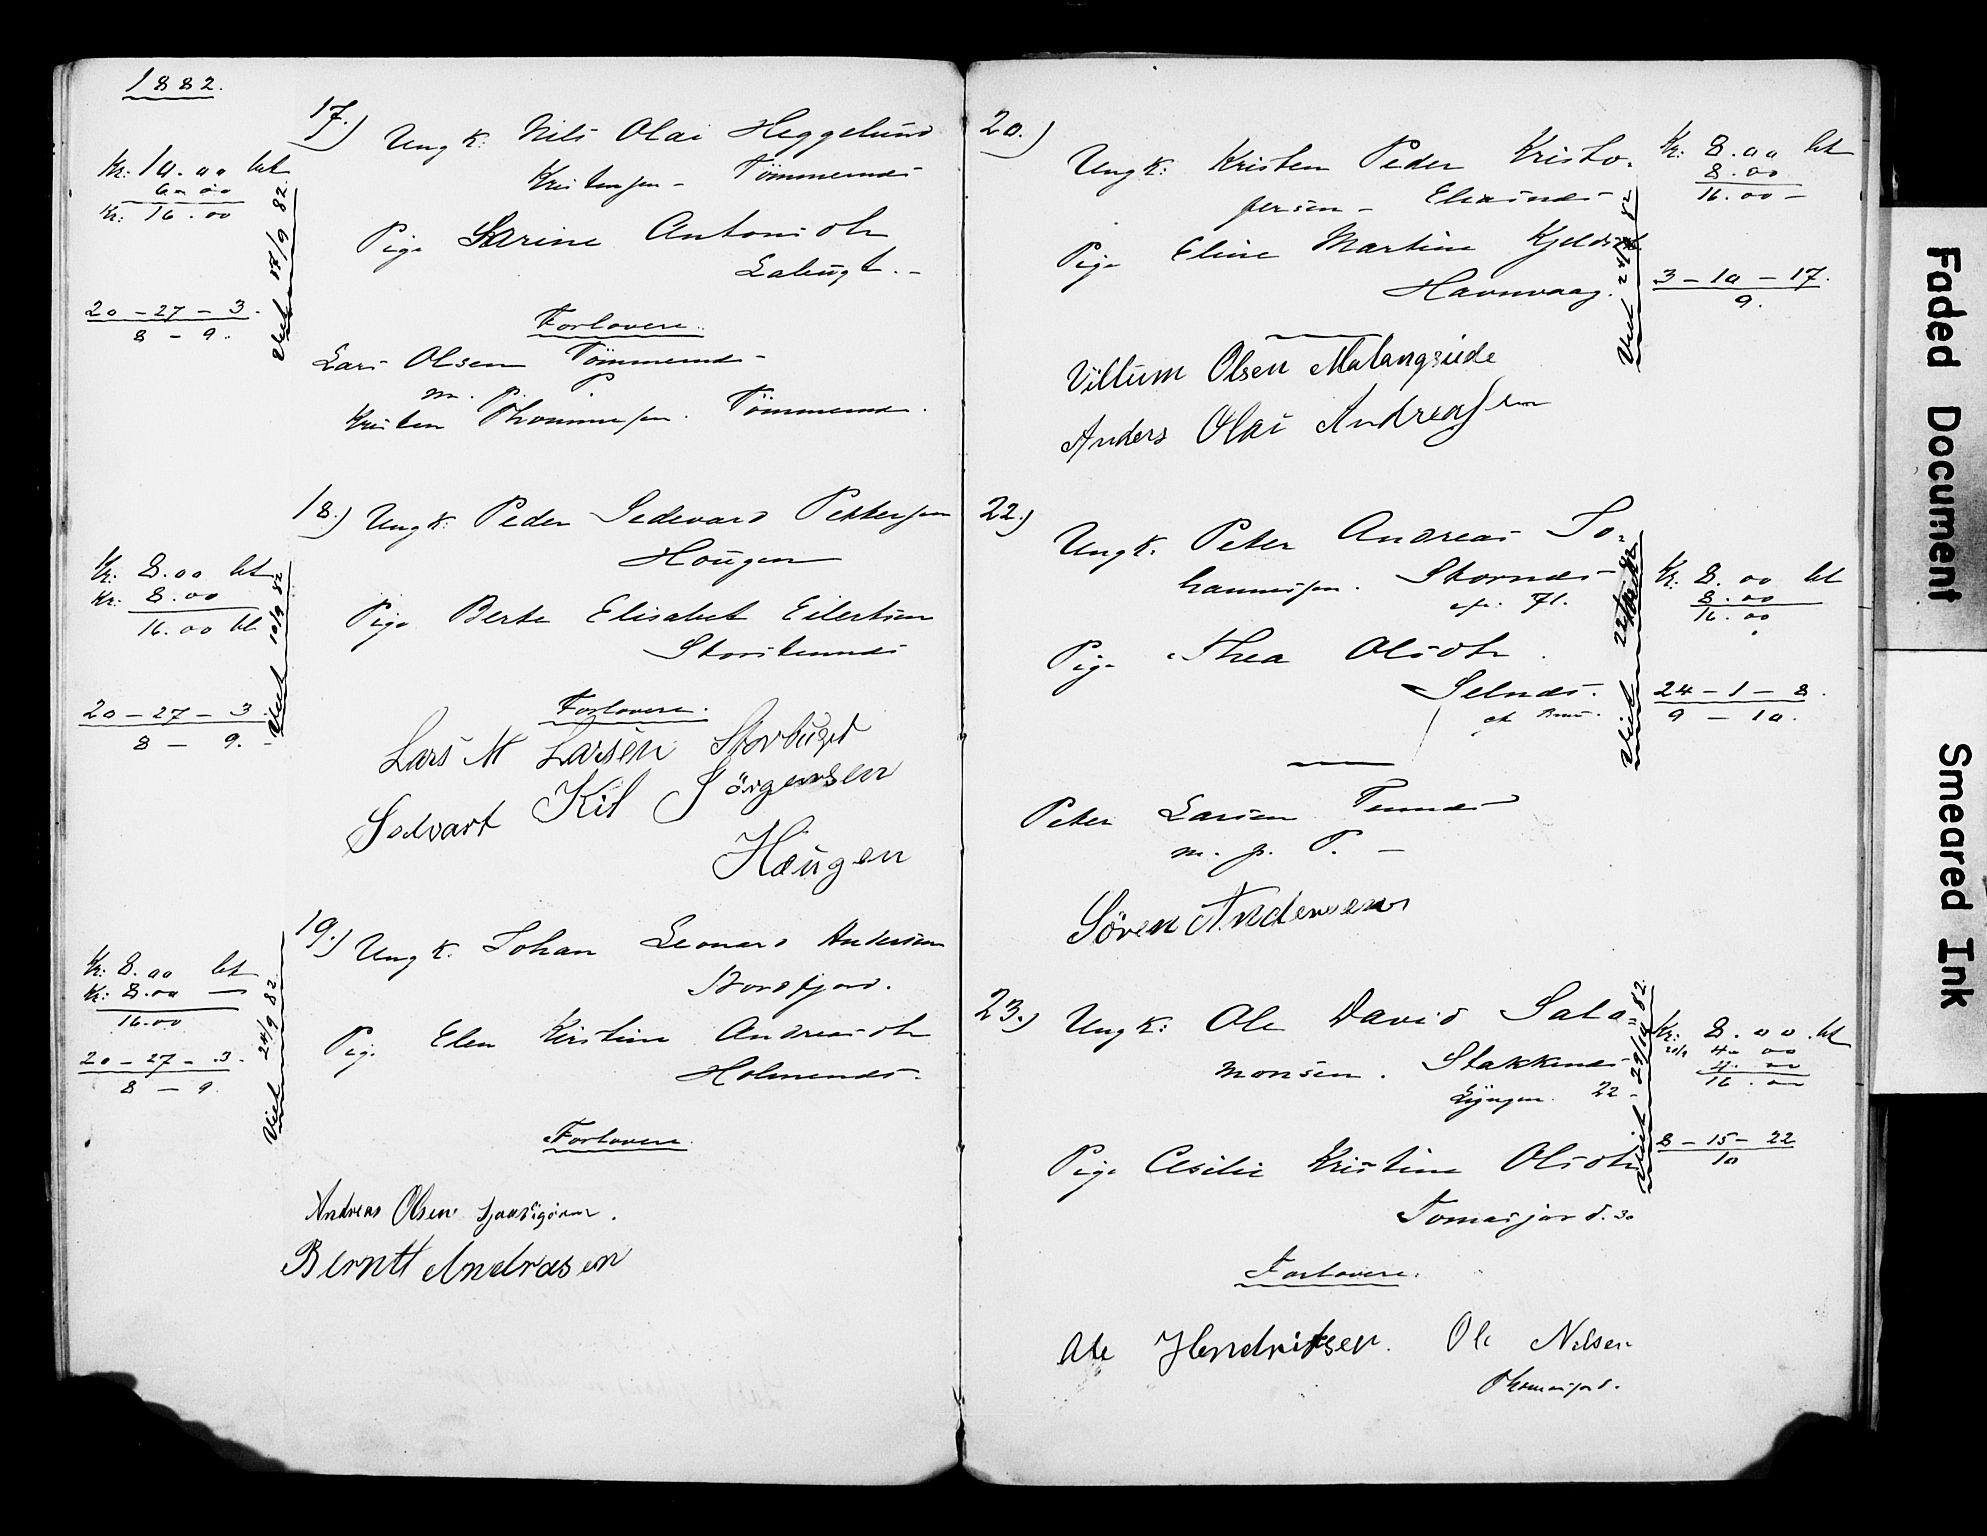 1882.
17.) Ungk: Nils Olai Heggelund
Kristensen - Tömmernes
Pige Sarine Antonsdtr
Labugt.-
Forlovere.
Lars Olsen Tömmernes -
m. p. P.
Kristen Thommesen. Tömmernes.
Kr: 10.00 bt
6.00
Kr: 16.00
20-27-3.
8-9.
Viet 17/9 82.
18.) Ungk: Peder Sedevard Pettersen
Hougen
Pige Berte Elisabet Eilertsen
Storstennes
Forlovere.
Lars M Larsen Storbugt
Sedvart Kil Jörgensen
Haugen
Kr: 8.00 bt
Kr: 8.00
16.00 bt
20-27-3.
8-9.-
Viet 10/9 82
19.) Ungk: Johan Leonard Andersen
Nordfjord.
Pige Elen Kirstine Andreasdtr
Holmenes.
Forlovere.
Andreas Olsen
Berntt Andrasen
Kr: 8.00 bt
Kr: 8.00 -
16.00
20-27-3.
8-9.
Viet 24/9 82.
20.)
Ungk: Kristen Peder Kristo-
fersen - Elvenes
Pige Eline Martine Kjeldsdtr
Havnvaag.
Villum Olsen Malangseide
Anders Olai Andreassen
Kr: 8.00 bt
8.00
16.00 -
3-10-17.
9.
Viet 24/9 82
22.)
Ungk: Peter Andreas Jo-
hannesen. Stornes
71.
Pige Thea Olsdtr.
Selnes.
Peter Larsen Tennes
m. p. P. -
Sören Andersen
Kr: 8.00 bt
8.00
16.00
24-1-8.
9-10.
Viet 22/10 82
23.)
Ungk: Ole David Sala-
monsen. Stakkenes
Lyngen. 22-
Pige Cesilie Kristine Olsdtr
Tomasjord. 30
Forlovere.
Ole Hendriksen. Ole Nilsen
Thomasjord.
Kr: 8.00 bt
4.00
4.00
16.00
8-15-22
10
Viet 29/10 82.
Faded Document
Smeared Ink